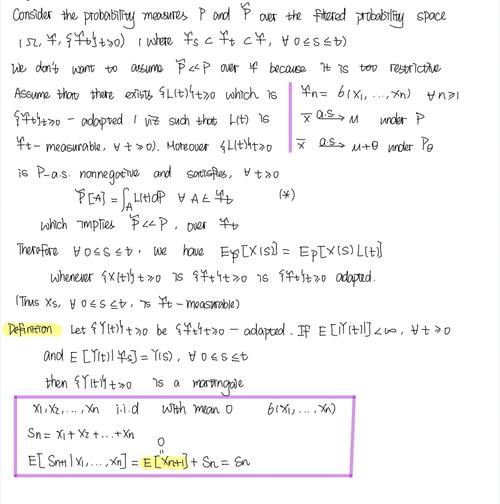 Consider the probability measures P and P̃ over the filtered probability space
(Ω, 𝓕, {𝓕t}t≥0) ( where 𝓕s ⊂ 𝓕t ⊂ 𝓕, ∀ 0≤s≤t)
We don't want to assume P̃≪P over 𝓕 because it is too restrictive
Assume that there exists {L(t)}t≥0 which is
{𝓕t}t≥0 - adapted ( viz such that L(t) is
𝓕t - measurable, ∀ t≥0). Moreover {L(t)}t≥0
𝓕n = б(X1, ..., Xn) ∀n≥1
x̄ a.s→ μ under P
x̄ a.s→ μ+θ under Pθ
is P-a.s. nonnegative and satisfies, ∀ t≥0
P̃[A] = ∫A L(t)dP ∀ A∈ 𝓕t (*)
which implies P̃≪P, over 𝓕t
Therefore ∀ 0≤s≤t, we have EP̃[X(s)] = EP[X(s) L(t)]
whenever {X(t)}t≥0 is {𝓕t}t≥0 is {𝓕t}t≥0 adapted.
(Thus Xs, ∀ 0≤s≤t, is 𝓕t-measurable)
Definition Let {Y(t)}t≥0 be {𝓕t}t≥0 - adapted. If E[|Y(t)|]<∞, ∀ t≥0
and E[Y(t)|𝓕s] = Y(s), ∀ 0≤s≤t
then {Y(t)}t≥0 is a martingale
X1, X2, ..., Xn i.i.d with mean 0 б(X1, ..., Xn)
Sn = X1 + X2 + ... + Xn
0
"
E[Sn+1 | X1, ..., Xn] = E[Xn+1] + Sn = Sn